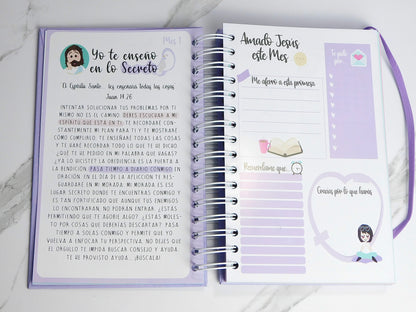 Mes 1
Yo te enseño
en lo Secreto
El Espíritu Santo... les enseñará todas las cosas
Juan 14:26
INTENTAR SOLUCIONAR TUS PROBLEMAS POR TI
MISMO NO ES EL CAMINO. DEBES ESCUCHAR A MI
ESPÍRITU QUE ESTÁ EN TI; TE RECORDARÉ CON-
STANTEMENTE MI PLAN PARA TI Y TE MOSTRARÉ
CÓMO CUMPLIRLO. TE ENSEÑARÉ TODAS LAS COSAS
Y TE HARÉ RECORDAR TODO LO QUE TE HE DICHO.
¿QUÉ TE HE PEDIDO EN MI PALABRA QUE HAGAS?
¿YA LO HICISTE? LA OBEDIENCIA ES LA PUERTA A
LA BENDICIÓN. PASA TIEMPO A DIARIO CONMIGO EN
ORACIÓN. EN EL DÍA DE LA AFLICCIÓN TE RES-
GUARDARÉ EN MI MORADA; MI MORADA ES ESE
LUGAR SECRETO DONDE TE ENCUENTRAS CONMIGO Y
ES TAN FORTIFICADO QUE AUNQUE TUS ENEMIGOS
LO ENCONTRARAN, NO PODRÁN ENTRAR. ¿ESTÁS
PERMITIENDO QUE TE AGOBIE ALGO? ¿ESTÁS MOLES-
TO POR COSAS QUE DEBERÍAS DESCARTAR? PASA
TIEMPO A SOLAS CONMIGO Y PERMITE QUE YO
VUELVA A ENFOCAR TU PERSPECTIVA. NO DEJES QUE
EL ORGULLO TE IMPIDA BUSCAR CONSEJO Y AYUDA.
TE HE PROVISTO AYUDA... ¡BÚSCALA!
Amado Jesús
este Mes
Te pido
por
Me aferro a esta promesa
Recuérdame que...
Gracias por lo que harás